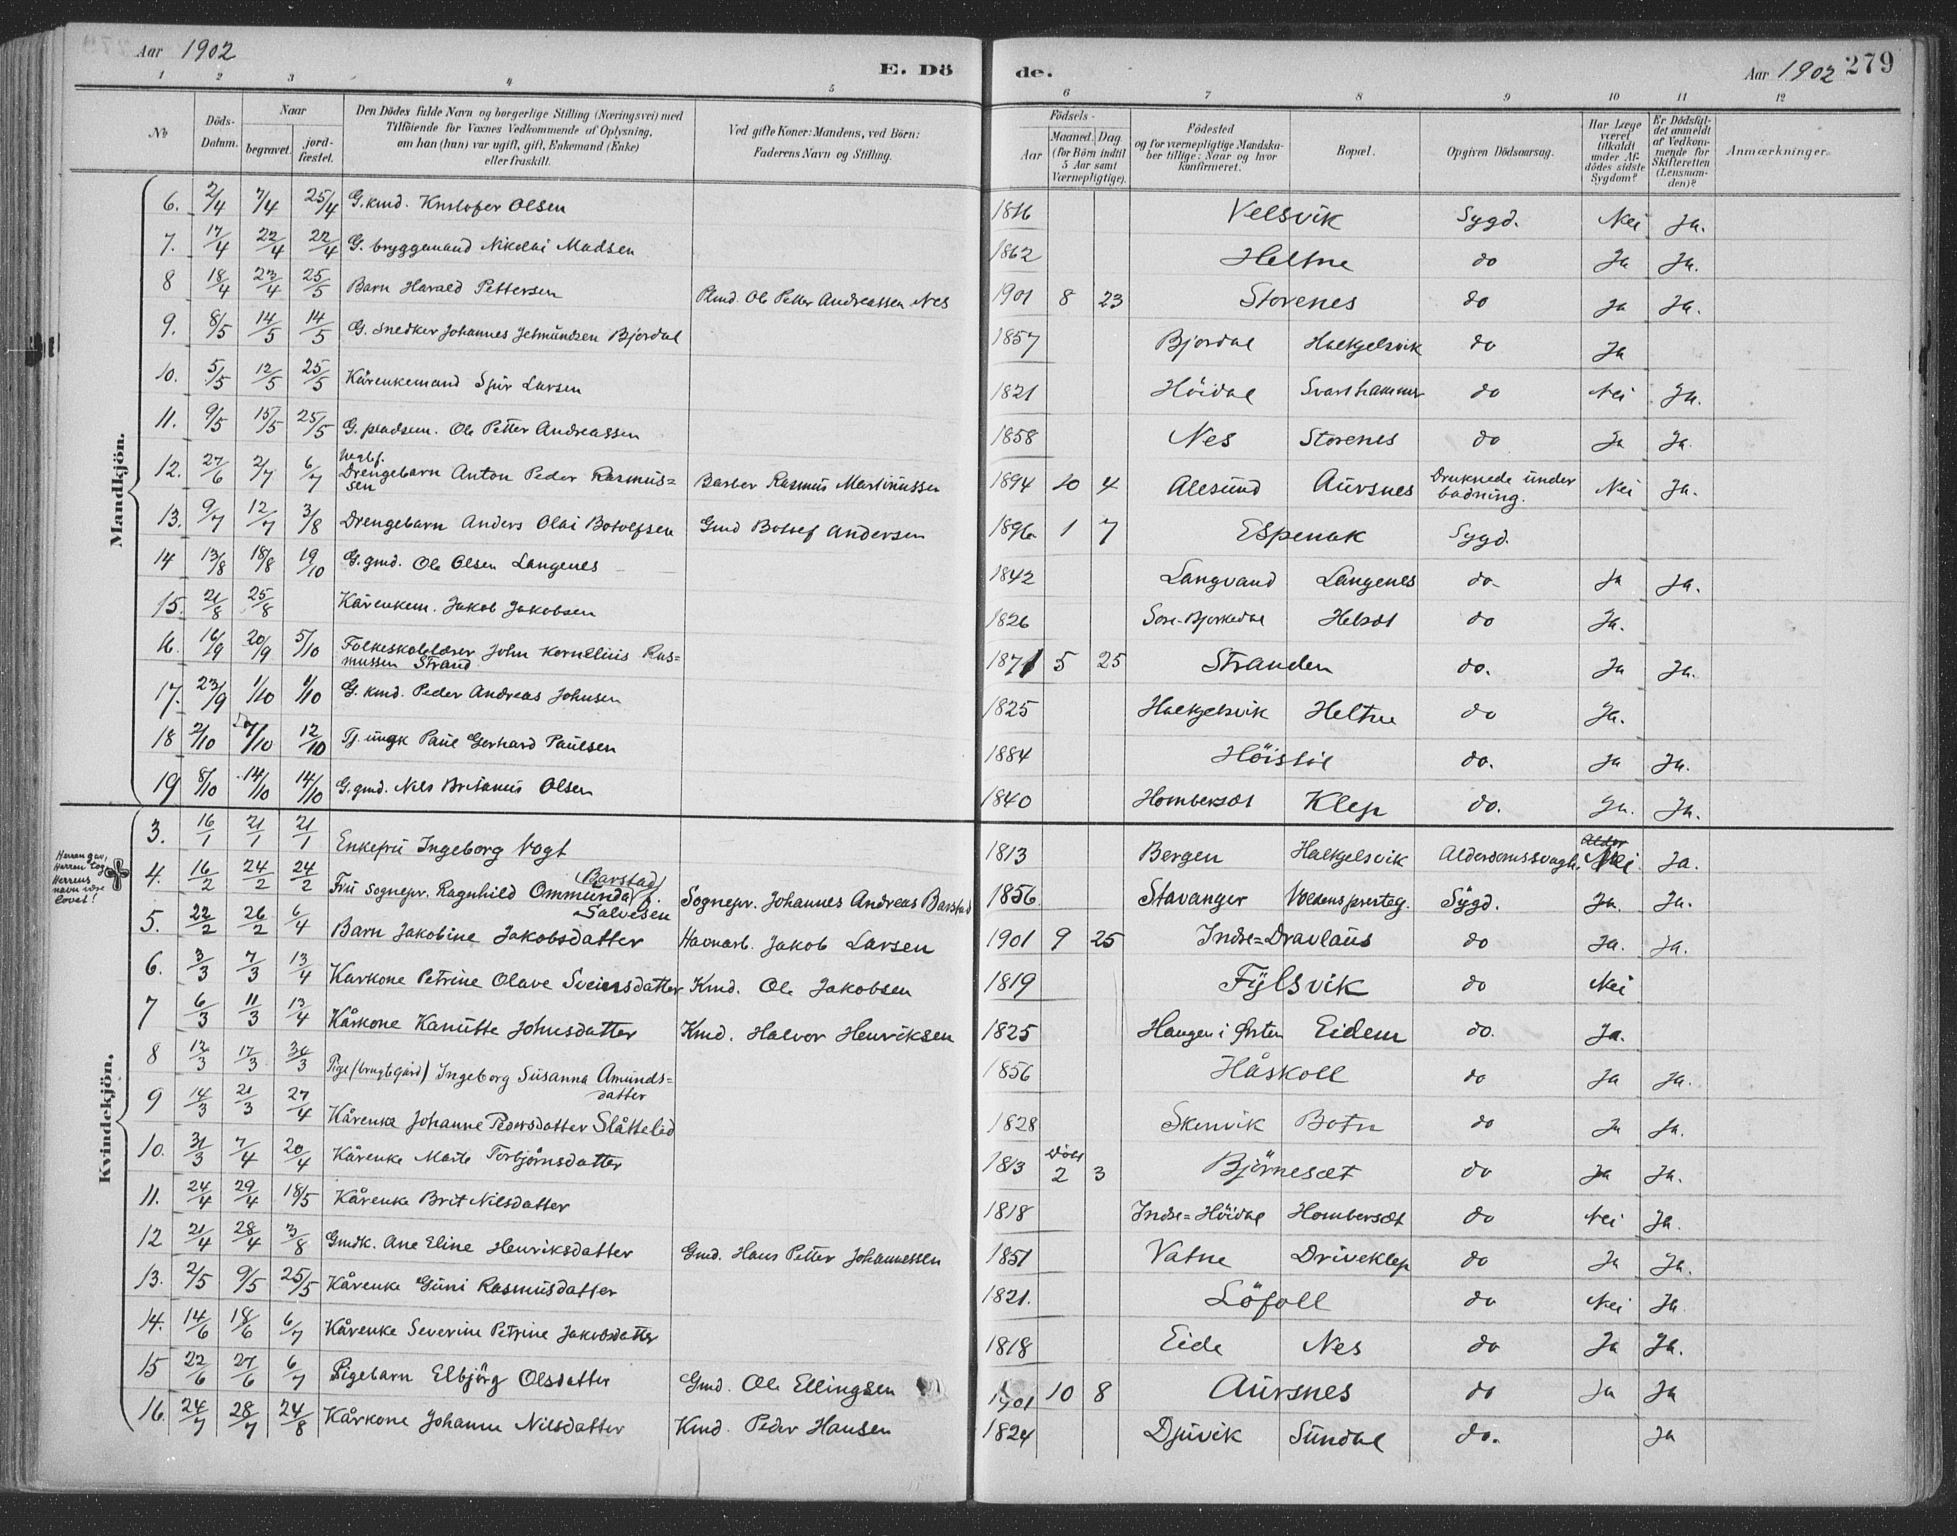 Aar 1902
E. Dö
de.
Aar 1902 279
1 2 3 4 5 6 7 8 9 10 11 12
No
Döds-Datum.
Naar
begravet.
jord-fæstet.
Den Dödes fulde Navn og borgerlige Stilling (Næringsvei) med
Tilföiende for Voxnes Vedkommende af Oplysning,
om han (hun) var ugift, gift, Enkemand (Enke)
eller fraskilt.
Ved gifte Koner: Mandens, ved Børn:
Faderens Navn og Stilling.
Födsels-
Aar
Maaned. Dag
(for Børn indtil
5 Aar samt
Værnepligtige).
Födested
og for værnepligtige Mandska-
ber tillige: Naar og hvor
konfirmeret.
Bopæl.
Opgiven Dödsaarsag.
Har Læge
været
tilkaldt
under Af-
dödes sidste
Sygdom?
Er Dödsfal-
det anmeldt
af Vedkom-
mende for
Skifteretten
(Lensman-
den)?
Anmærkninger.
Mandkjön.
6. 2/4 7/4 25/4 G. kmd. Knstofer Olsen 1816 Velsvik Sygd. Nei Ja.
7. 17/4 22/4 22/4 G. bryggemand Nikolai Madsen 1862 Heltne do Ja Ja.
8 18/4 23/4 25/5 Barn Harald Pettersen Plmd. Ole Petter Andreassen Nes 1901 8 23 Storenes do Ja Ja.
9. 8/5 14/5 14/5 G. Snedker Johannes Jetmundsen Bjordal 1857 Bjordal Halkjelsvik do Ja
10. 5/5 12/5 25/5 Kårenkemand Sjur Larsen 1821 Höidal Svarthammer do Nei Ja.
11. 9/5 15/5 25/5 G. pladsem. Ole Petter Andreassen 1858 Nes Storenes do Ja Ja.
12. 27/6 2/7 6/7 Drengebarn Anton Peder Rasmus=
sen Barber Rasmus Martinussen 1894 10 4 Alesund Aursnes Druknede under
badning. Nei Ja.
13. 9/7 12/7 3/8 Drengebarn Anders Olai Botolfsen Gmd Botolf Andersen 1896 1 7 Espenak Sygd.
14 13/8 18/8 19/10 G. gmd. Ole Olsen Langenes 1842 Langvand Langenes do Ja Ja.
15. 21/8 25/8 Kårenkem. Jakob Jakobsen 1826 Søre-Bjørkedal Helset do Ja.
16. 16/9 20/9 5/10 Folkeskolelærer John Kornelius Ras=
mussen Strand 1871 5 25 Stranden do. Ja Ja.
17. 23/9 1/10 1/10 G. kmd. Peder Andreas Johnsen 1825 Halkjelsvik Heltne do Ja.
18 2/10 7/10 12/10 Tj. ungk Paul Gerhard Paulsen 1884 Höistöl do. Ja Ja.
19 8/10 14/10 14/10 G. gmd. Nils Britanus Olsen 1840 Homberset Klep do. Ja. Ja.
Kvindekjön.
3. 16/1 21/1 21/1 Enkefru Ingeborg Vogt 1813 Bergen Halkjelsvik Alderdomssvagh. Nei Ja.
Herren gav,
Herren tog
Herrens
navn være
lovet!
4. 16/2 24/2 24/2 Fru Sognepr. Ragnhild Ommunda Barstad f.
Salvesen Sognepr. Johannes Andreas Barstad 1856. Stavanger Voldens presteg. Sygd. Ja. Ja.
5. 22/2 26/2 6/4 Barn Jakobine Jakobsdatter Havnarb. Jakob Larsen 1901 9 25 Indre=Dravlaus do Ja. Ja.
6. 3/3 7/3 13/4 Karkone Petrine Olave Sveinsdatter Kmd. Ole Jakobsen 1819 Fylsvik do Nei
7 6/3 11/3 13/4 Kårkone Kanutte Johnsdatter Kmd. Halvor Henriksen 1825 Haugen i Ørsten Eidem do. Ja.
8 12/3 17/3 Pige (brugtgård) Ingeborg Susanna Amunds=
datter 1856 Håskoll do Ja Ja.
9 14/3 21/3 27/4 Kårenke Johanne Pedersdatter Slåttelid 1828 Skinvik Botn do Ja Ja.
10. 31/3 7/4 20/4 Kårenke Marte Torbjørnsdatter 1813 døbt
2 3 Björneset do Ja Ja.
11. 24/4 29/4 18/5 Kårenke Brit Nilsdatter 1818 Indre=Höidal Homberset do Nei Ja.
12 21/4 28/4 3/8 Gmdk. Ane Eline Henriksdatter Gmd. Hans Petter Johannessen 1851 Vatne Driveklep do Ja Ja.
13. 2/5 9/5 25/5 Kårenke Guni Rasmusdatter 1821. Löfoll do Nei Ja
14. 14/6 18/6 6/7 Kårenke Severine Petrine Jakobsdatter 1818 Eide Nes do Ja Ja.
15 22/6 27/6 6/7 Pigebarn Elbjörg Olsdatter Gmd. Ole Ellingsen 1901 10 8 Aursnes do Ja Ja
16. 24/7 28/7 24/8 Kårkone Johanne Nilsdatter Kmd. Peder Hansen 1824 Djuvik Sundal do. Ja